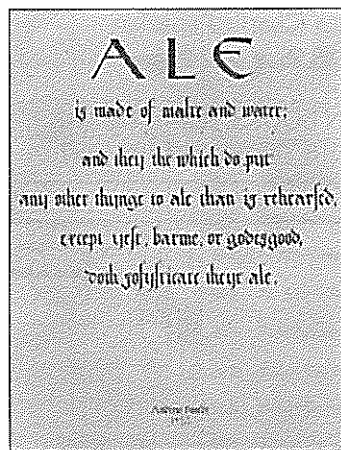 ALE
is made of malte and water;
and they the which do put
any other thynge to ale than is rehearsed,
except yest, barme, or godesgood,
doth sofysticate theyr ale.
Andrew